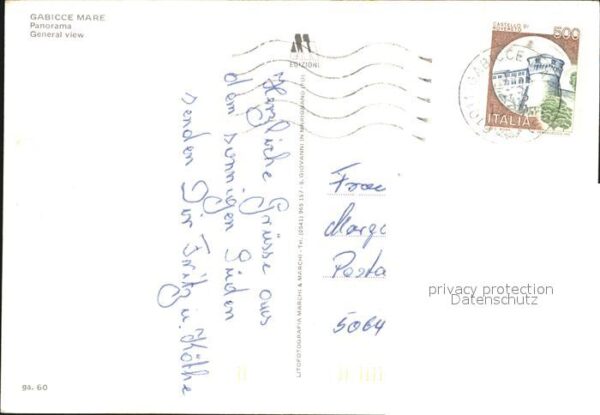 GABICCE MARE
Panorama
General view
EDIZIONI
CASTELLO DI
ROVERETO
500
ITALIA
GABICCE
Herzliche Grüsse aus
dem sonnigen Süden
senden Dir Fritz u. Käthe
LITOFOTOGRAFIA MARCHI & MARCHI - Tel. (0541) 955 157 - S. GIOVANNI IN MARIGNANO (FO)
Frau
Marg
Posta
5064
privacy protection
Datenschutz
ga. 60